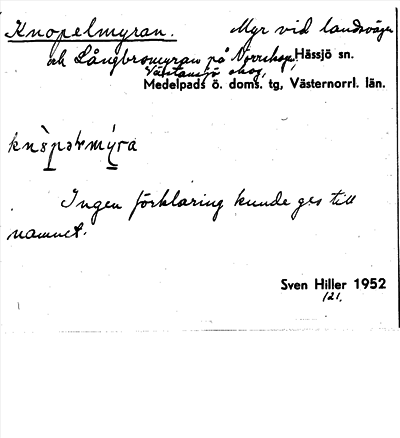 Knopelmyran. Myr vid landsvägen
och Långbromyran på Norrskog, Hässjö sn.
Västansjö skog,
Medelpads ö. doms. tg, Västernorrl. län.
knòpəlmýra
Ingen förklaring kunde ges till
namnet.
Sven Hiller 1952
121.